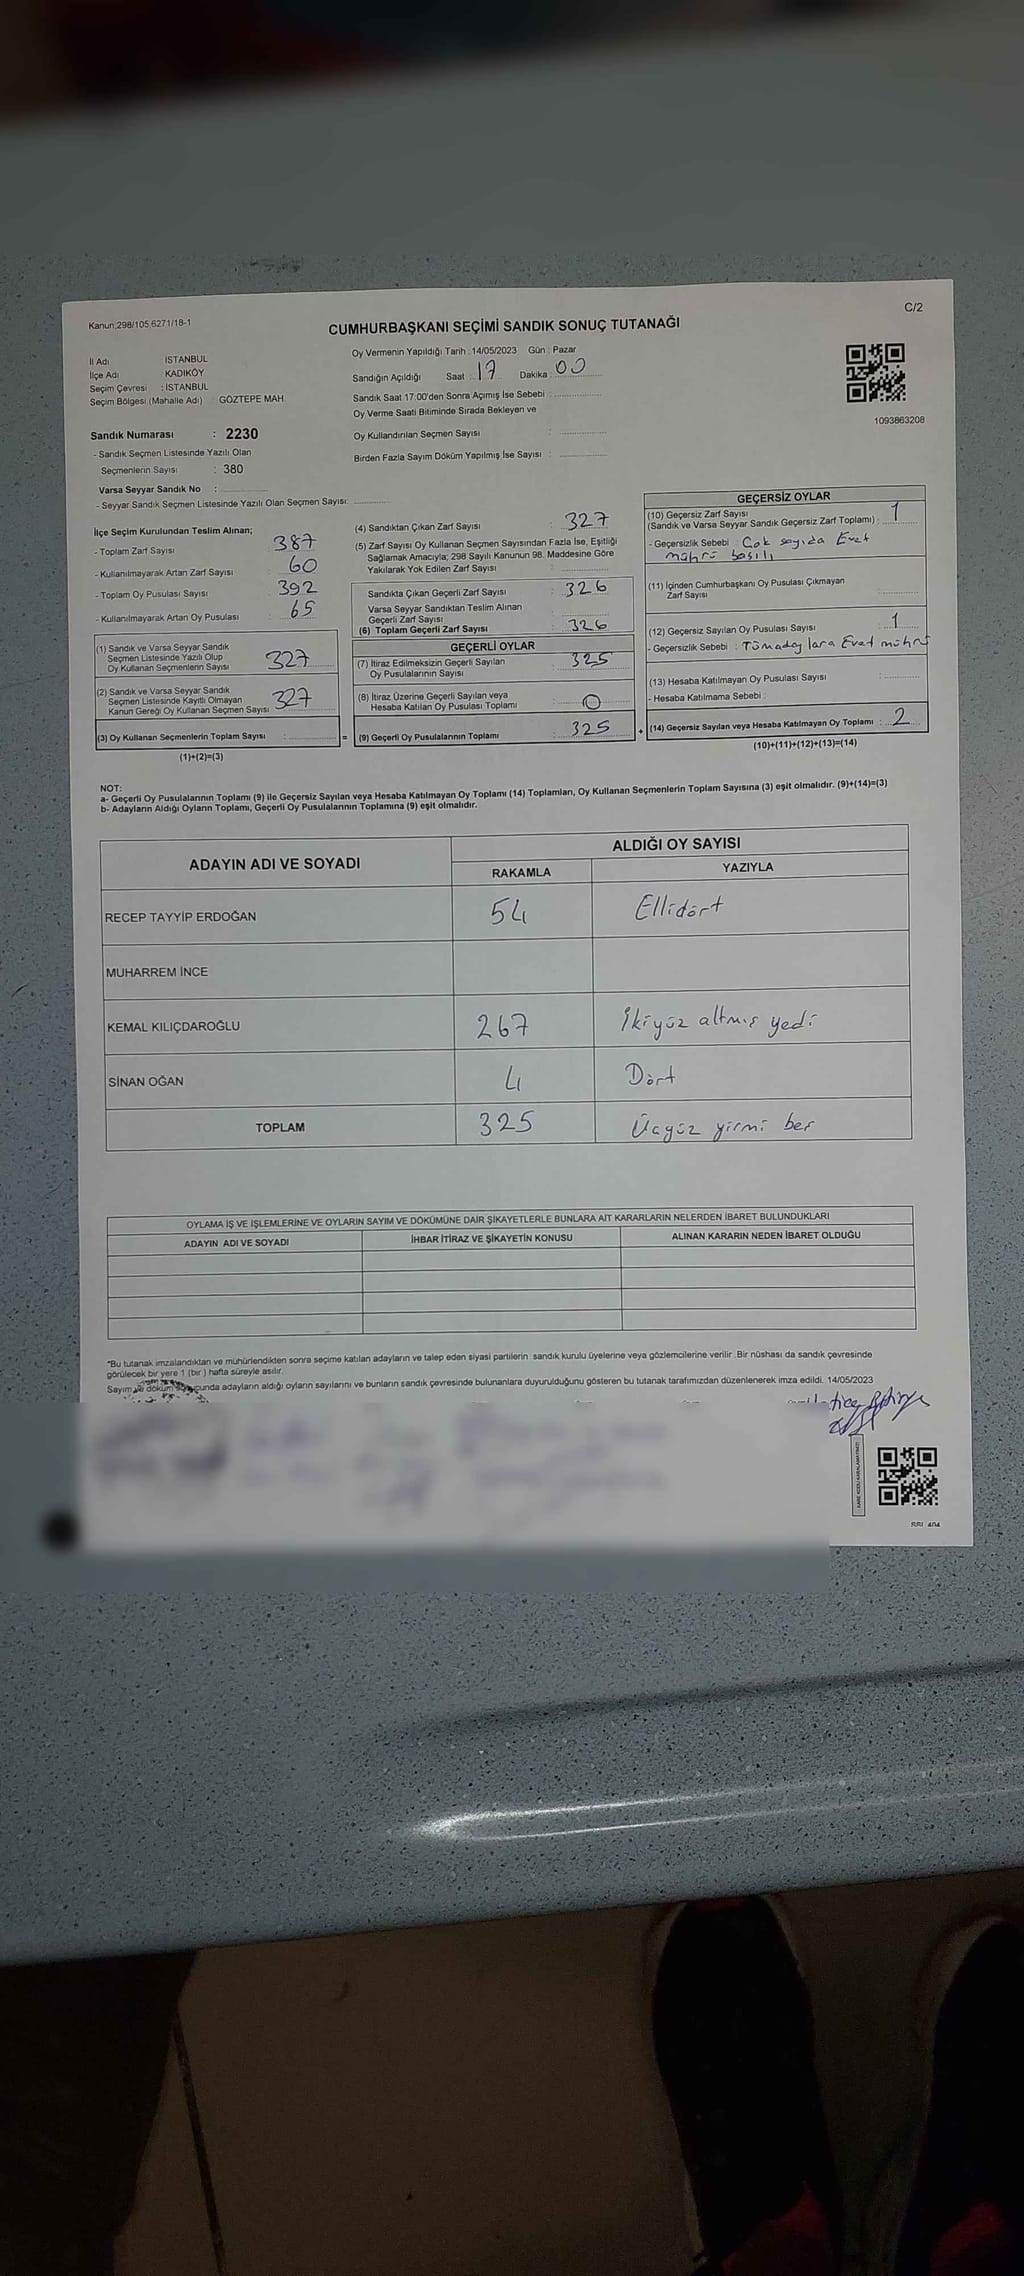 Kanun;298/105,6271/18-1
C/2
CUMHURBAŞKANI SEÇİMİ SANDIK SONUÇ TUTANAĞI
İl Adı İSTANBUL
İlçe Adı KADIKÖY
Seçim Çevresi : İSTANBUL
Seçim Bölgesi (Mahalle Adı) GÖZTEPE MAH.
Sandık Numarası : 2230
- Sandık Seçmen Listesinde Yazılı Olan
Seçmenlerin Sayısı : 380
Varsa Seyyar Sandık No :
- Seyyar Sandık Seçmen Listesinde Yazılı Olan Seçmen Sayısı:
Oy Vermenin Yapıldığı Tarih :14/05/2023 Gün : Pazar
Sandığın Açıldığı Saat : 17 Dakika : 00
Sandık Saat 17:00'den Sonra Açımış İse Sebebi :
Oy Verme Saati Bitiminde Sırada Bekleyen ve
Oy Kullandırılan Seçmen Sayısı :
Birden Fazla Sayım Döküm Yapılmış İse Sayısı :
1093863208
İlçe Seçim Kurulundan Teslim Alınan;
- Toplam Zarf Sayısı 387
- Kullanılmayarak Artan Zarf Sayısı : 60
- Toplam Oy Pusulası Sayısı : 392
- Kullanılmayarak Artan Oy Pusulası : 65
(1) Sandık ve Varsa Seyyar Sandık
Seçmen Listesinde Yazılı Olup
Oy Kullanan Seçmenlerin Sayısı 327
(2) Sandık ve Varsa Seyyar Sandık
Seçmen Listesinde Kayıtlı Olmayan
Kanun Gereği Oy Kullanan Seçmen Sayısı 327
(3) Oy Kullanan Seçmenlerin Toplam Sayısı : =
(1)+(2)=(3)
(4) Sandıktan Çıkan Zarf Sayısı : 327
(5) Zarf Sayısı Oy Kullanan Seçmen Sayısından Fazla İse, Eşitliği
Sağlamak Amacıyla; 298 Sayılı Kanunun 98. Maddesine Göre
Yakılarak Yok Edilen Zarf Sayısı :
Sandıkta Çıkan Geçerli Zarf Sayısı : 326
Varsa Seyyar Sandıktan Teslim Alınan
Geçerli Zarf Sayısı :
(6) Toplam Geçerli Zarf Sayısı : 326
GEÇERLİ OYLAR
(7) İtiraz Edilmeksizin Geçerli Sayılan
Oy Pusulalarının Sayısı : 325
(8) İtiraz Üzerine Geçerli Sayılan veya
Hesaba Katılan Oy Pusulası Toplamı : 0
(9) Geçerli Oy Pusulalarının Toplamı : 325 +
GEÇERSİZ OYLAR
(10) Geçersiz Zarf Sayısı
(Sandık ve Varsa Seyyar Sandık Geçersiz Zarf Toplamı) : 1
- Geçersizlik Sebebi : Çok sayıda Evet
mührü basılı
(11) İçinden Cumhurbaşkanı Oy Pusulası Çıkmayan
Zarf Sayısı :
(12) Geçersiz Sayılan Oy Pusulası Sayısı : 1
- Geçersizlik Sebebi : Tüm adaylara Evet mührü
(13) Hesaba Katılmayan Oy Pusulası Sayısı :
- Hesaba Katılmama Sebebi :
(14) Geçersiz Sayılan veya Hesaba Katılmayan Oy Toplamı : 2
(10)+(11)+(12)+(13)=(14)
NOT:
a- Geçerli Oy Pusulalarının Toplamı (9) ile Geçersiz Sayılan veya Hesaba Katılmayan Oy Toplamı (14) Toplamları, Oy Kullanan Seçmenlerin Toplam Sayısına (3) eşit olmalıdır. (9)+(14)=(3)
b- Adayların Aldığı Oyların Toplamı, Geçerli Oy Pusulalarının Toplamına (9) eşit olmalıdır.
ADAYIN ADI VE SOYADI
ALDIĞI OY SAYISI
RAKAMLA YAZIYLA
RECEP TAYYİP ERDOĞAN 54 Ellidört
MUHARREM İNCE
KEMAL KILIÇDAROĞLU 267 İkiyüz altmış yedi
SİNAN OĞAN 4 Dört
TOPLAM 325 Üçyüz yirmi beş
OYLAMA İŞ VE İŞLEMLERİNE VE OYLARIN SAYIM VE DÖKÜMÜNE DAİR ŞİKAYETLERLE BUNLARA AİT KARARLARIN NELERDEN İBARET BULUNDUKLARI
ADAYIN ADI VE SOYADI İHBAR İTİRAZ VE ŞİKAYETİN KONUSU ALINAN KARARIN NEDEN İBARET OLDUĞU
*Bu tutanak imzalandıktan ve mühürlendikten sonra seçime katılan adayların ve talep eden siyasi partilerin sandık kurulu üyelerine veya gözlemcilerine verilir .Bir nüshası da sandık çevresinde
görülecek bir yere 1 (bir ) hafta süreyle asılır.
Sayım ve döküm sonucunda adayların aldığı oyların sayılarını ve bunların sandık çevresinde bulunanlara duyurulduğunu gösteren bu tutanak tarafımızdan düzenlenerek imza edildi. 14/05/2023